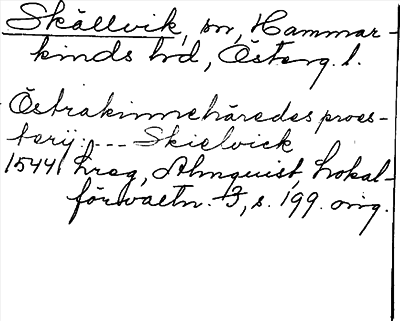 Skällvik, sn, Hammar-
kinds hd, Österg. l.
Östrakinnehäredes proes-
terij: --- Skielvick
1544 hreg, Almquist, Lokal-
förvaltn. I, s. 199. orig.